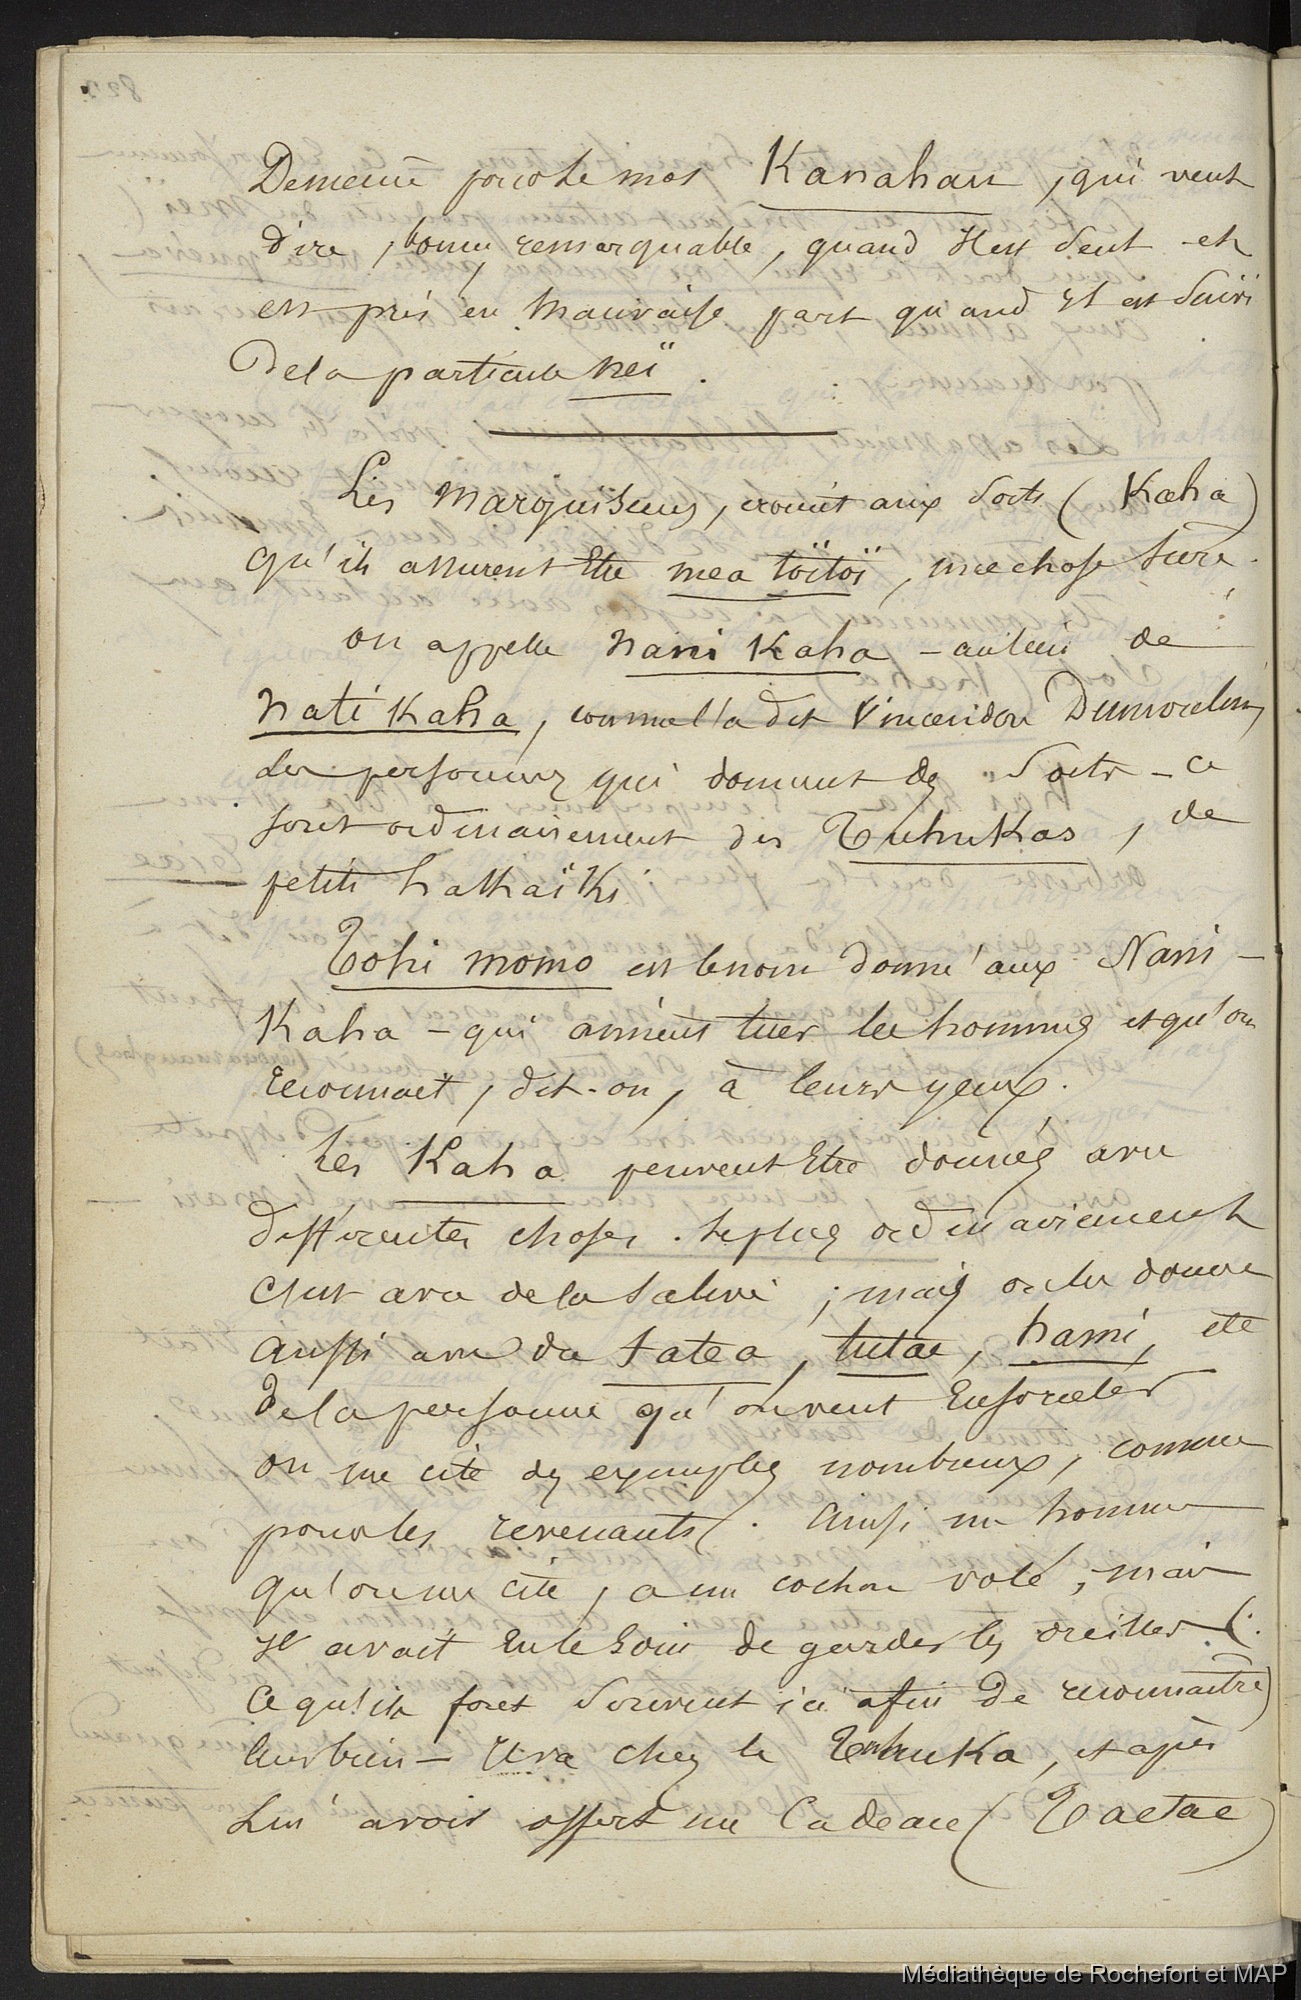 De meme pour le mot Kanahau, qui veut
dire, bonne, remarquable, quand Il est seul et
est pris en mauvaise part quand Il est suivi
de la particule neï.
Les Marquisiens, croient aux sorts (Kaha)
qu'ils assurent Etre mea toïtoï, une chose sure.
on appelle nani Kaha - au lieu de
nati Kaha, comme l'a dit Vincendon Dumoulin,
les personnes qui donnent des sorts - ce
sont ordinairement des Tuhukas, de
petits hakaïki
Tohi momo est le nom donné aux Nani-
Kaha - qui aiment tuer les hommes et qu'on
reconnait, dit-on, à leurs yeux.
Les Kaha peuvent Etre donnés avec
différentes choses. Le plus ordinairement
c'est avec de la salive; mais on les donne
aussi avec du tatea, tutae, hami, etc
de la personne qu'on veut Ensorceler
on me cite des exemples nombreux, comme
pour les revenants. Ainsi un homme
qu'on me cite, a un cochon volé, mais
Il avait Eu le soin de garder les oreilles (
ce qu'ils font souvent ici afin de reconnaitre)
leur bien - Il va chez le Tuhuka, et après
Lui avoir offert un Cadeau (Taetae)
Médiathèque de Rochefort et MAP